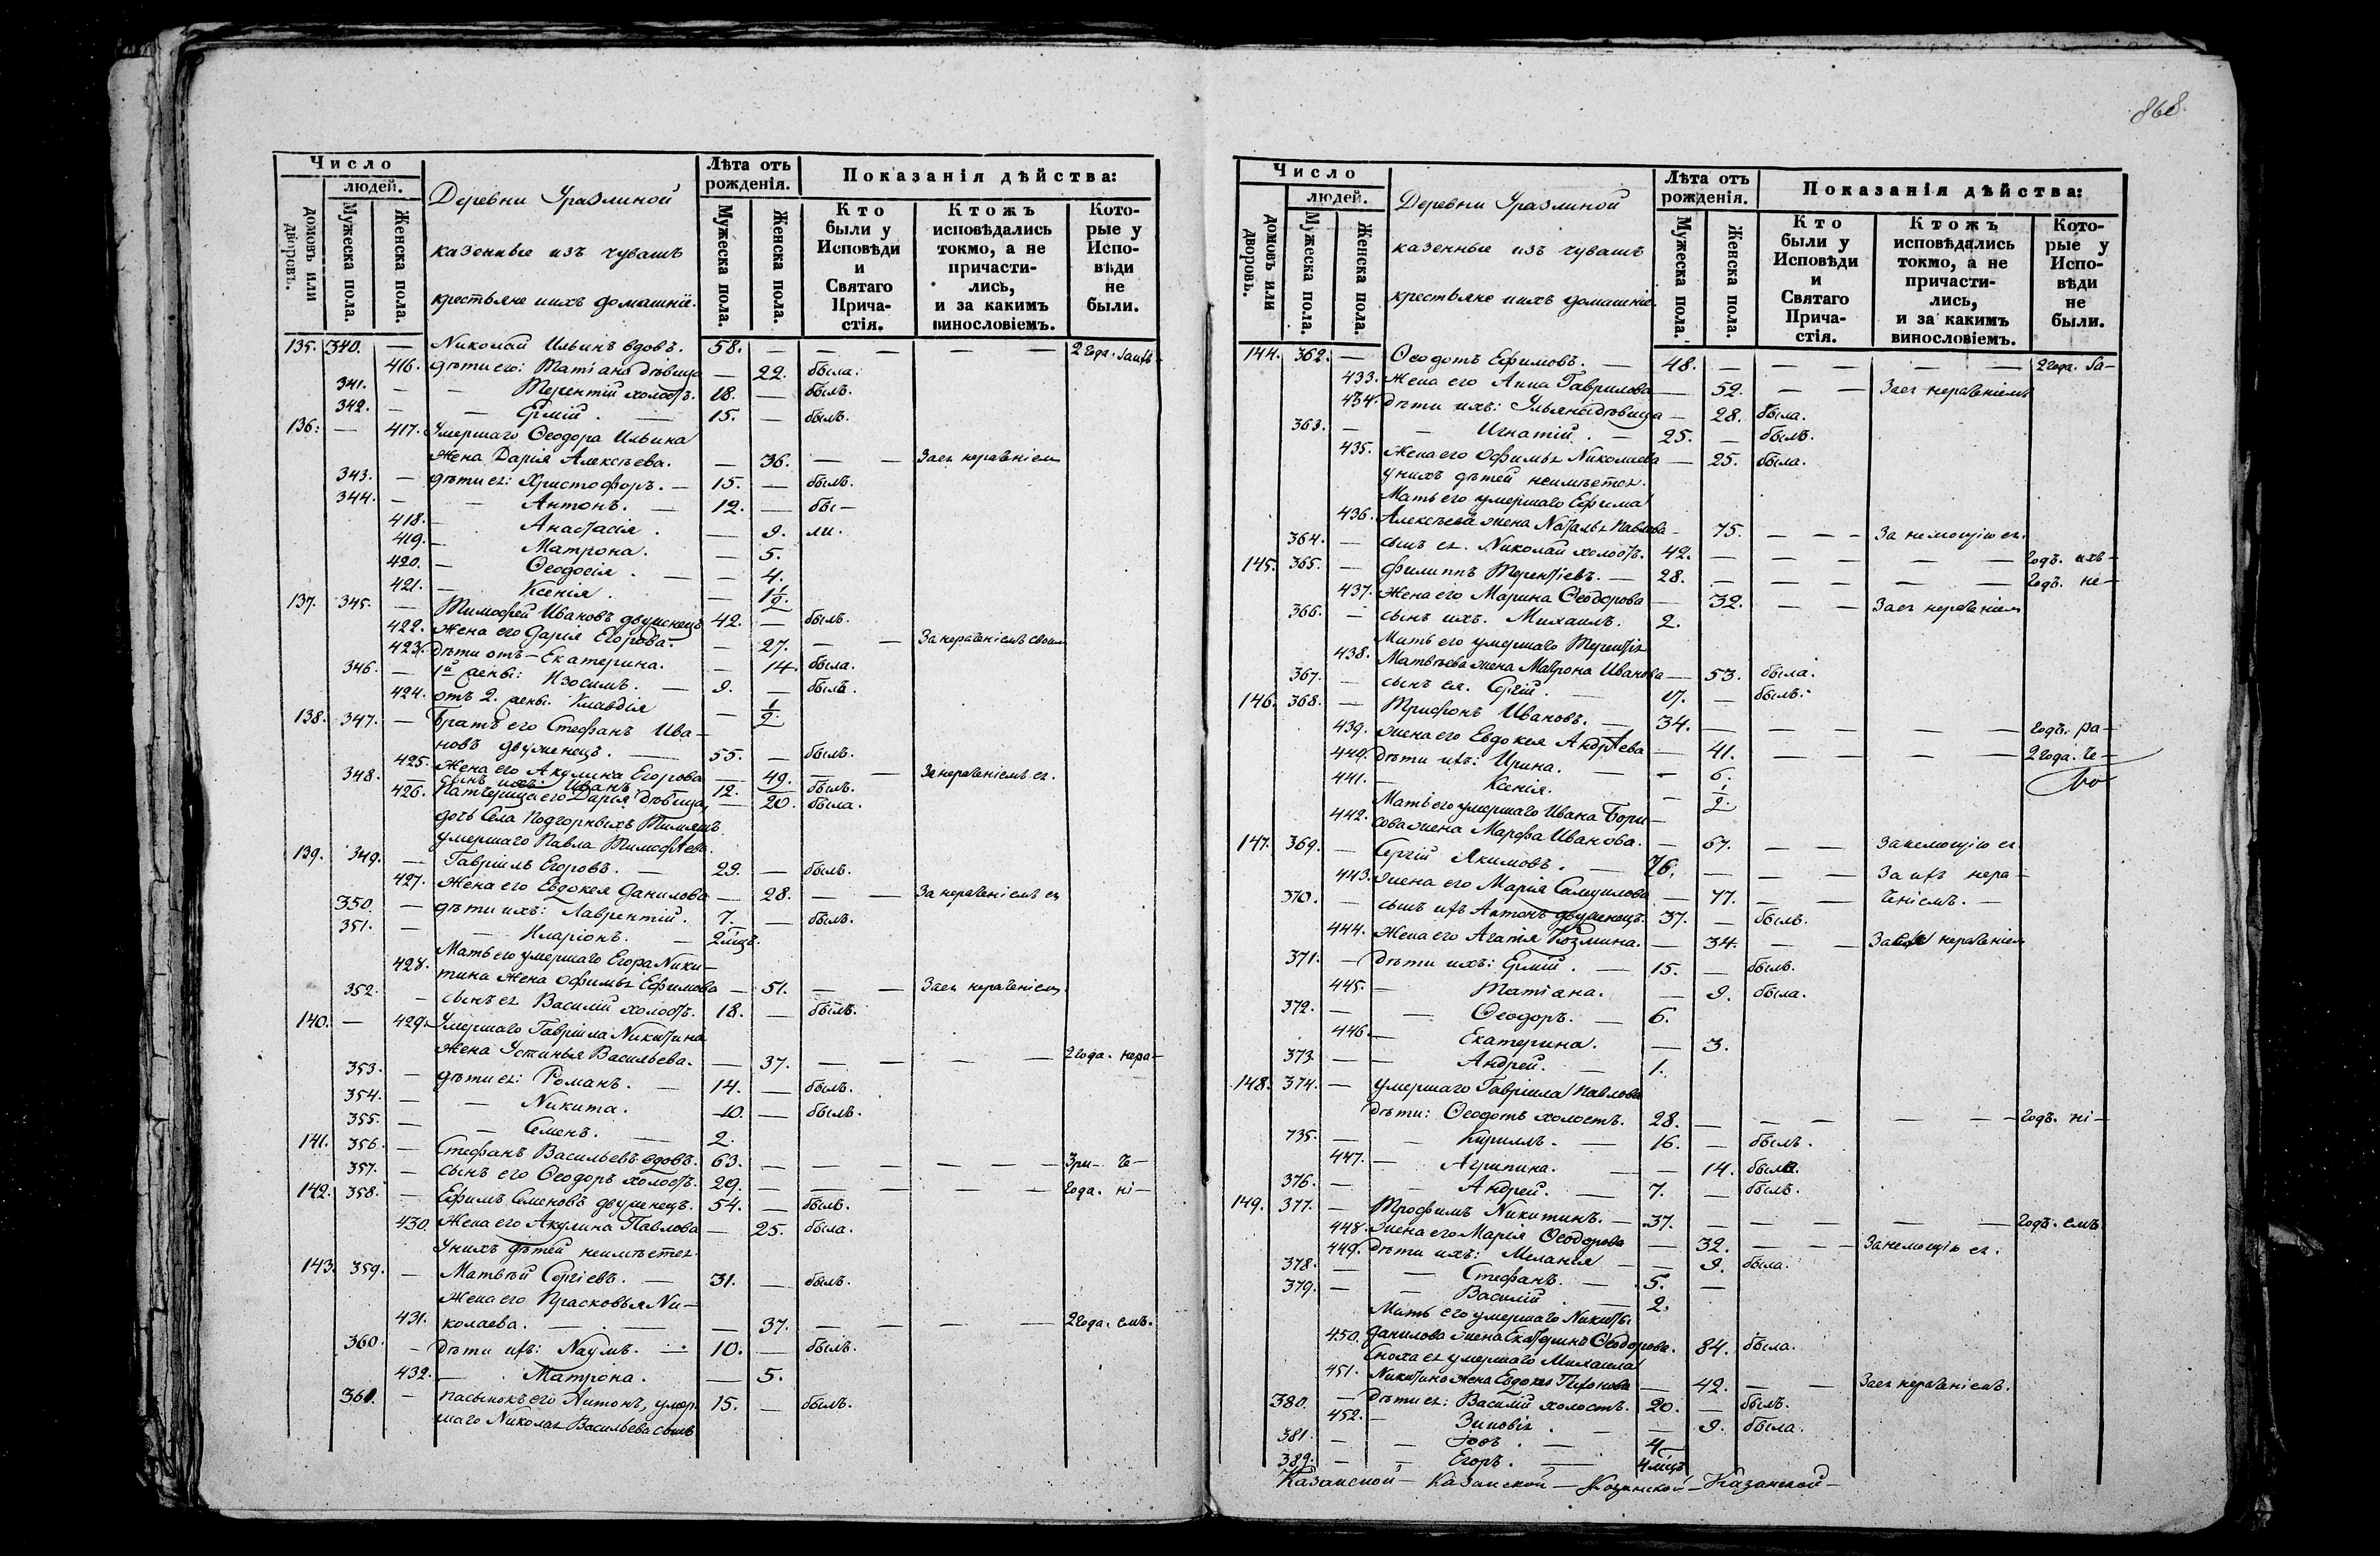 868
Число
людей.
домовъ или дворовъ.
Мужеска пола.
Женска пола.
Деревни Уразлиной
казенные изъ чувашъ
крестьяне ихъ домашніе.
Лѣта отъ рожденія.
Мужеска пола.
Женска пола.
Показанія дѣйства:
Кто были у Исповѣди и Святаго Прича-стія.
Ктожъ исповѣдались токмо, а не причасти-лись, и за какимъ винословіемъ.
Кото-рые у Испо-вѣди не были.
135. 340. — Николай Ильинъ вдовъ. 58. — — — — 2 года.
416. дѣти его: Татіана дѣвица — 22. была.
341. — — Терентій холостъ. 18. — былъ.
342. — — Ермій. — 15. — былъ.
136. — 417. Умершаго Ѳеодора Ильина
жена Дарія Алексѣева. — 36. — — За ея нераченіем
343. — дѣти ея: Христофоръ. — 15. — былъ.
344. — — Антонъ. — 12. — бы—
418. — Анастасія. — 9. ли.
419. — Матрона. — 5.
420. — Ѳеодосія. — — 4.
421. — Ксенія. — 1 1/2.
137. 345. — Тимофей Ивановъ двуженецъ 42. — былъ.
422. жена его Дарія Егорова. — 27. — — За нераченіемъ своим
423. дѣти отъ — Екатерина. — 14. была.
346. — 1й жены: Изосимъ. — 9. — былъ.
424. отъ 2. жены. Клавдія — 1/2.
138. 347. — Братъ его Стефанъ Ива—
новъ двуженецъ. — 55. — былъ.
425. Жена его Акулина Егорова — 49. — За нераченіемъ ея.
348. — сынъ ихъ: Иванъ 12. — былъ.
426. Падчерица его Дарія дѣвица, — 20. была.
дочь Села Подгорныхъ Тимяшъ
умершаго Павла Тимофѣева.
139. 349. — Гавріилъ Егоровъ. — 29. — былъ.
427. жена его Евдокея Данилова — 28. — — За нераченіемъ ея
350. — дѣти ихъ: Лаврентій. 7. — былъ.
351. — — Иларіонъ. — 2 мцъ.
Мать его умершаго Егора Ники—
428. тина жена Офимья Ефимова — 51. — — За ея нераченіем.
352. — сынъ ея Василій холостъ. 18. — былъ.
140. — 429. Умершаго Гавріила Никитина
жена Устинья Васильева. — 37. — — — — 2 года. нера—
353. — дѣти ея: Романъ. — 14. — былъ.
354. — — Никита. 10 — былъ.
355. — — Семенъ. — 2.
141. 356. — Стефанъ Васильевъ вдовъ. 63. — — — — — — 3 ри— че—
357. — сынъ его Ѳеодоръ холостъ. 29. — — — — — года. ні—
142. 358. — Ефимъ Семеновъ двуженецъ. 54. — былъ.
430. Жена его Акулина Павлова — 25. была.
У нихъ дѣтей неимѣется.
143. 359. — Матвѣй Сергіевъ. — 31. — былъ.
Жена его Прасковья Ни—
431. колаева. — — — 37. — — — — 2 года. емъ.
360. — дѣти ихъ: Наумъ. — 10. — былъ.
432. — Матрона. — 5.
361. — пасынокъ его Антонъ, умер 15. — былъ.
шаго Николая Васильева сынъ
Число
людей.
домовъ или дворовъ.
Мужеска пола.
Женска пола.
Деревни Уразлиной
казенные изъ чувашъ
крестьяне ихъ домашніе.
Лѣта отъ рожденія.
Мужеска пола.
Женска пола.
Показанія дѣйства:
Кто были у Исповѣди и Святаго Прича-стія.
Ктожъ исповѣдались токмо, а не причасти-лись, и за какимъ винословіемъ.
Кото-рые у Испо-вѣди не были.
144. 362. — Ѳеодотъ Ефимовъ. — 48. — — — — — 2 года. За—
433. Жена его Анна Гаврилова — 52. — — За ея нераченіемъ
434. дѣти ихъ: Ульяна дѣвица — 28. была.
363. — — Игнатій. — 25. — былъ.
435. Жена его Офимья Николаева — 25. была.
у нихъ дѣтей неимѣется.
Мать его умершаго Ефима
436. Алексѣева жена Наталья Павлова — 75. — — — За немощію ея.
364. — сынъ ея. Николай холостъ. 42. — — — — годъ. ихъ—
145. 365. — Филиппъ Терентіевъ. — 28. — — — — — годъ. не—
437. Жена его Марина Ѳеодорова — 32. — — За ея нераченіем
366. — сынъ ихъ. Михаилъ. 2.
Мать его умершаго Терентія
438. Матвѣева жена Матрона Иванова — 53. была.
367. — сынъ ея. Сергій. — 17. — былъ.
146. 368. — Трифонъ Ивановъ. — 34. — — — — — годъ. ра—
439. жена его Евдокея Андрѣева — 41. — — — — 2 года. че—
440. дѣти ихъ: Ирина. — — 6.
441. — Ксенія. — 1/2.
Мать его умершаго Ивана Бори—
442. сова жена Марфа Иванова. — 67. — — За немощію ея.
147. 369. — Сергій Якимовъ. — 76. — — — За ихъ нера—
443. жена его Марія Самуилова — 77. — — ченіемъ. —
370. — сынъ ихъ Антонъ двуженецъ. 37. — былъ.
444. Жена его Агатія Козмина. — 34. — — За нераченіем
371. — дѣти ихъ: Ермій. — 15. — былъ.
445. — Татіана. — 9. была.
372. — — Ѳеодоръ. — 6.
446. — Екатерина. — 3.
373. — — Андрей. — 1.
148. 374. — умершаго Гавріила Павлова
дѣти: Ѳеодотъ холостъ. 28. — — — — — годъ. ні—
735. — — Кириллъ. — 16. — былъ.
447. — Агрипина. — — 14. была.
376. — — Андрей. — 7. — былъ.
149. 377. — Трофимъ Никитинъ. — 37. — — — — — годъ. емъ.
448. жена его Марія Ѳеодорова — 32. — — — За немощію ея.
449. дѣти ихъ: Меланія — — 9. была.
378. — — Стефанъ. — 5. —
379. — — Василій — 2.
Мать его умершаго Никиты
450. Данилова жена Екатерина Ѳеодорова. 84. была.
Сноха ея умершаго Михаила
451. Никитина жена Евдокея — 42. — — За ея нераченіемъ.
380. — дѣти ея: Василій холостъ. 20. — былъ.
452. — Зиновія. — — 9. была.
381. — — Іовъ. — 4
389. — — Егоръ. — 4 мцъ
Казанской — Казанской — Казанской — Казанской —